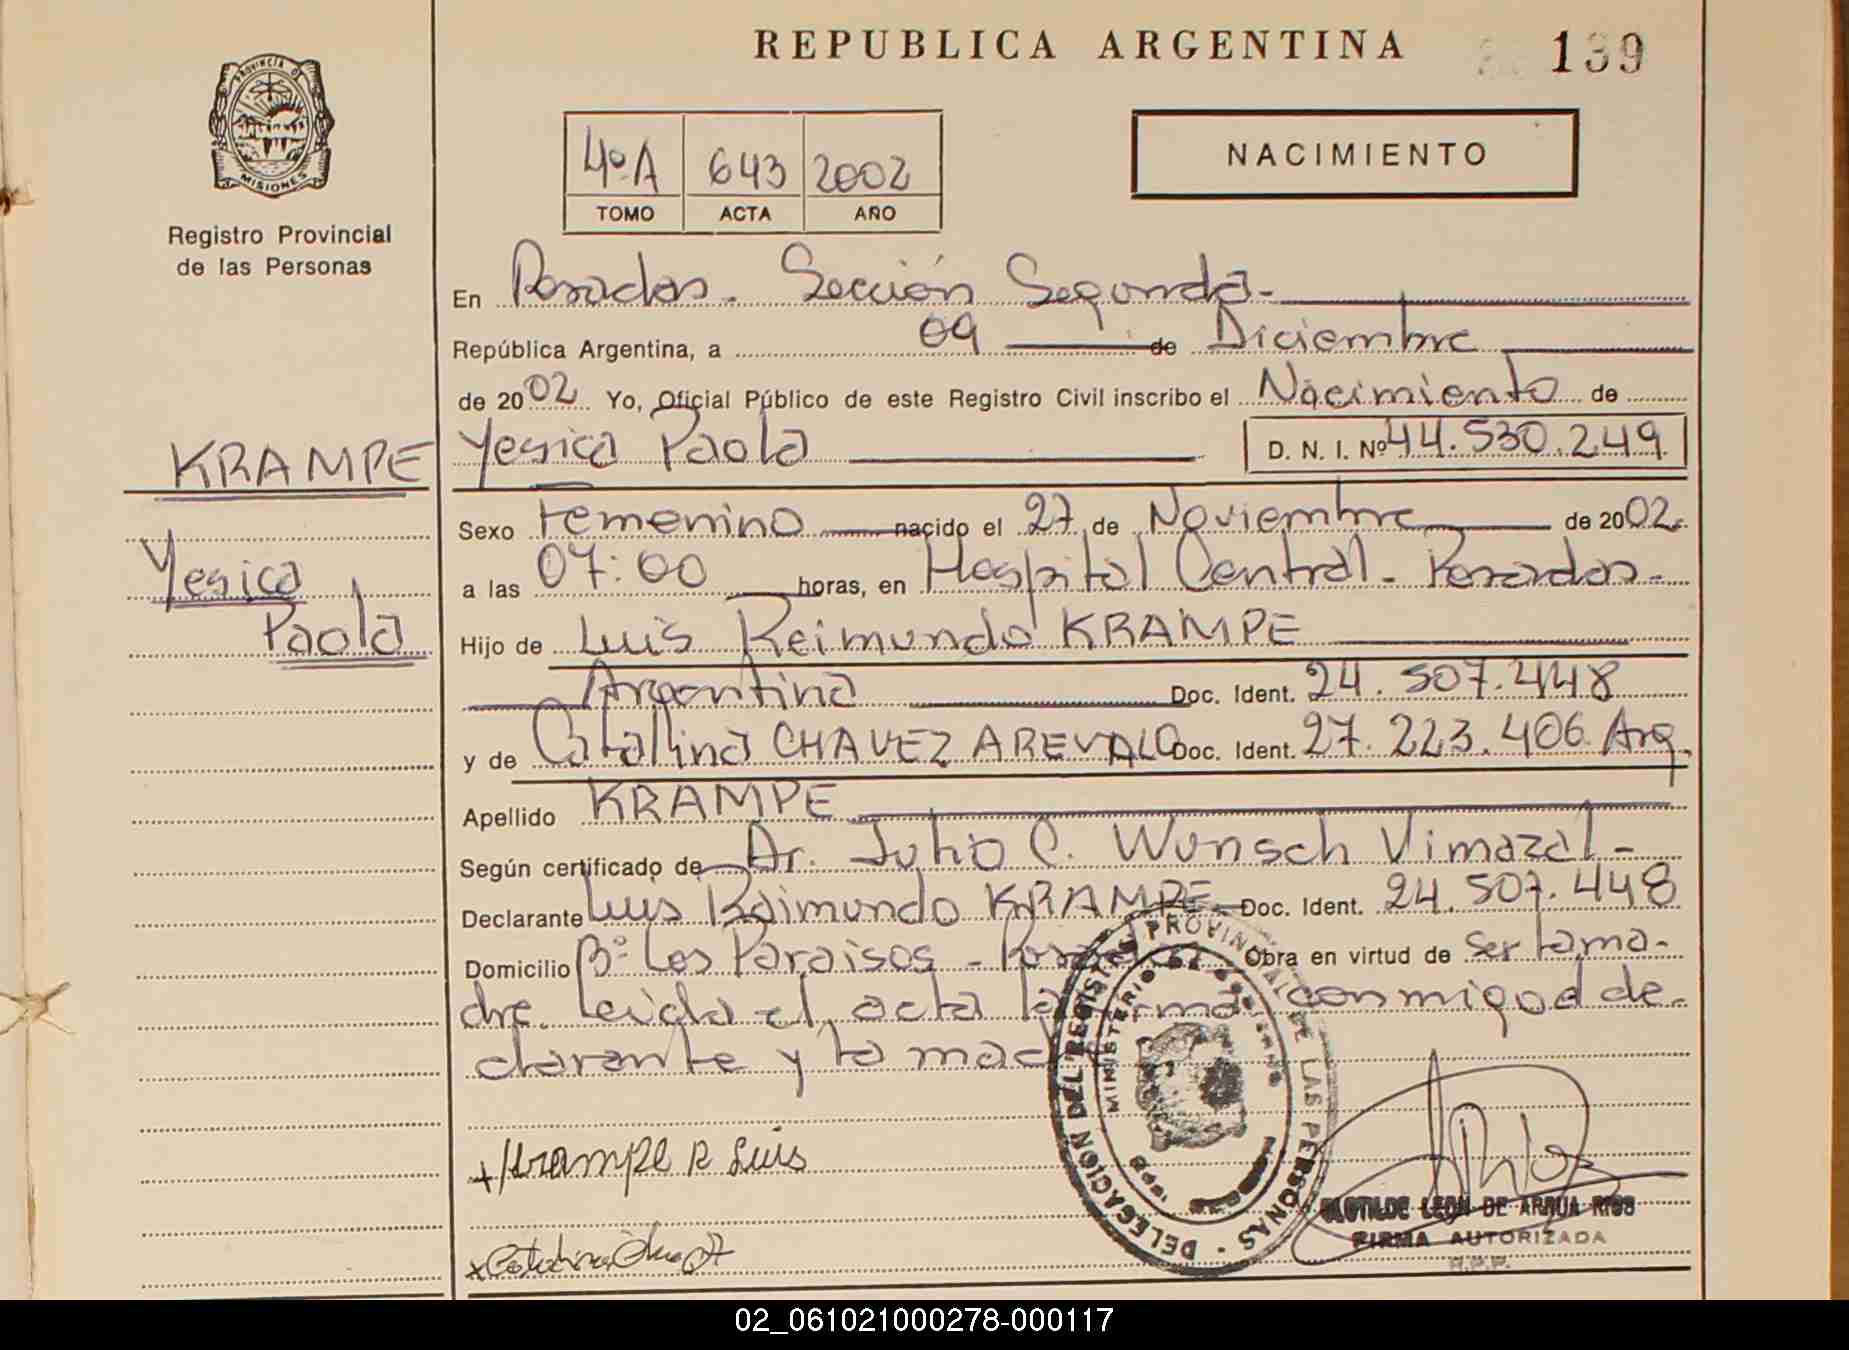 REPUBLICA ARGENTINA
139
PROVINCIA DE
MISIONES
Registro Provincial
de las Personas
4º A 643 2002
TOMO ACTA AÑO
NACIMIENTO
En Posadas. Sección Segunda-
República Argentina, a 09 de Diciembre
de 2002 Yo, Oficial Público de este Registro Civil inscribo el Nacimiento de
KRAMPE
Yesica Paola D. N. I. Nº 44.530.249
Sexo Femenino nacido el 27 de Noviembre de 2002
Yesica
Paola
a las 07:00 horas, en Hospital Central - Posadas-
Hijo de Luis Reimundo KRAMPE
Argentina Doc. Ident. 24.507.448
y de Catalina CHAVEZ AREVALO Doc. Ident. 27.223.406 Arg.
Apellido KRAMPE
Según certificado de Dr. Julio C. Wunsch Vimazal-
Declarante Luis Raimundo KRAMPE Doc. Ident. 24.507.448
Domicilio Bº Los Paraisos - Obra en virtud de ser la ma-
dre. Leida el acta la firma conmigo el de-
clarante y la madre
DELEGACION DEL REGISTRO PROVINCIAL DE LAS PERSONAS
MINISTERIO DE GOBIERNO
+ Krampe R Luis
CLOTILDE LEON DE ARRUA RIOS
FIRMA AUTORIZADA
R.P.P.
02_061021000278-000117